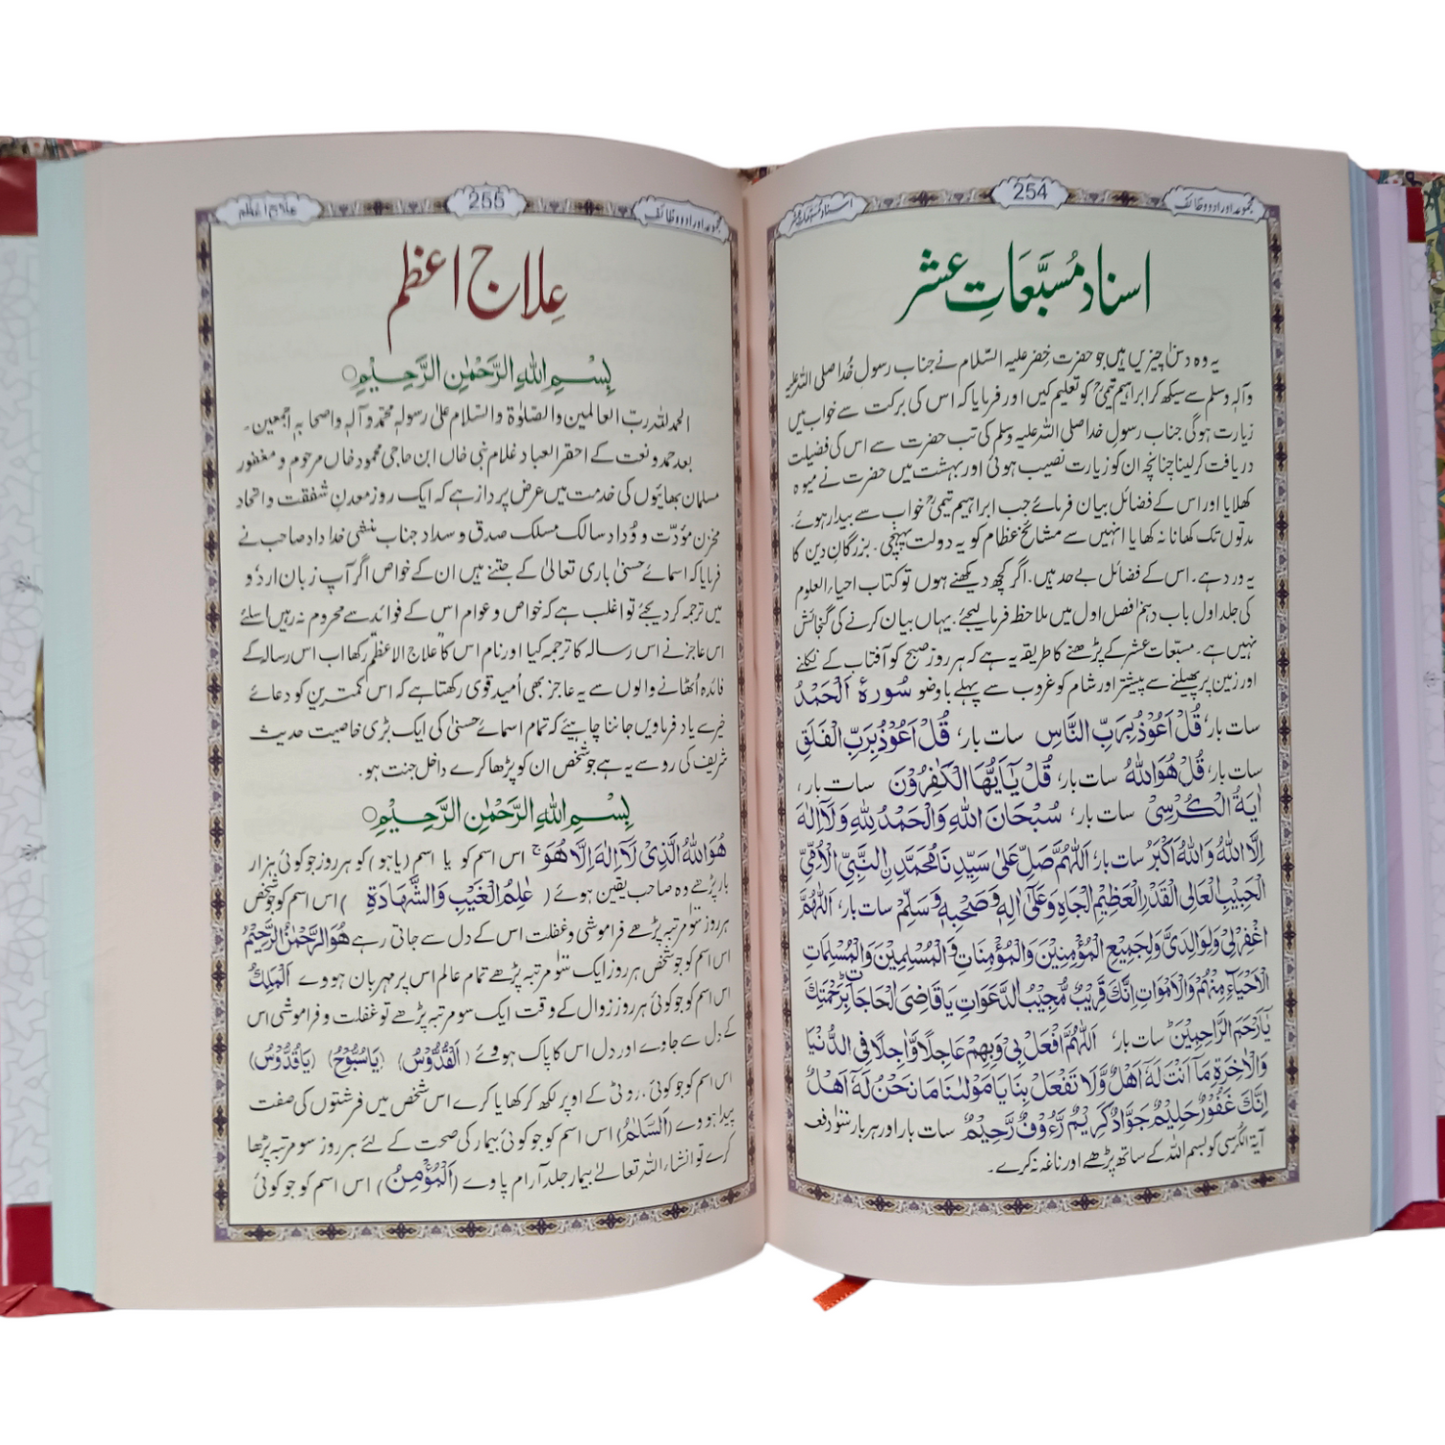 مجموعہ اوراد و وظائف
254
اسناد مسبعات عشر
اسناد مُسبَّعَاتِ عشر
یہ وہ دس چیزیں ہیں جو حضرت خِضر علیہ السّلام نے جناب رسولِ خُدا صلی اللہ علیہ
وآلہٖ وسلم سے سیکھ کر ابراہیم تیمیؒ کو تعلیم کیں اور فرمایا کہ اس کی برکت سے خواب میں
زیارت ہوگی جناب رسولِ خدا صلی اللہ علیہ وسلم کی تب حضرت سے اس کی فضیلت
دریافت کرلینا چنانچہ ان کو زیارت نصیب ہوئی اور بہشت میں حضرت نے میوہ
کھلایا اور اس کے فضائل بیان فرمائے جب ابراہیم تیمیؒ خواب سے بیدار ہوئے۔
مدتوں تک کھانا نہ کھایا انہیں سے مشائخ عظام کو یہ دولت پہنچی۔ بزرگانِ دین کا
یہ ورد ہے۔ اس کے فضائل بے حد ہیں۔ اگر کچھ دیکھنے ہوں تو کتاب احیاء العلوم
کی جلد اول باب دہم فصل اول میں ملاحظہ فرمالیجئے۔ یہاں بیان کرنے کی گنجائش
نہیں ہے۔ مسبّعات عشر کے پڑھنے کا طریقہ یہ ہے کہ ہر روز صبح کو آفتاب کے نکلنے
اور زمین پر پھیلنے سے پیشتر اور شام کو غروب سے پہلے باوضو سُورۂ اَلْحَمْدُ
سات بار، قُلْ اَعُوْذُ بِرَبِّ النَّاسِ سات بار، قُلْ اَعُوْذُ بِرَبِّ الْفَلَقِ
سات بار، قُلْ هُوَ اللهُ سات بار، قُلْ يٰٓاَيُّهَا الْكٰفِرُوْنَ سات بار،
اٰيَةُ الْكُرْسِیْ سات بار، سُبْحَانَ اللهِ وَالْحَمْدُ لِلّٰهِ وَلَآ اِلٰهَ
اِلَّا اللهُ وَاللهُ اَكْبَرُ سات بار، اَللّٰهُمَّ صَلِّ عَلٰى سَيِّدِنَا مُحَمَّدِنِ النَّبِيِّ الْاُمِّيِّ
الْحَبِيْبِ الْعَالِي الْقَدْرِ الْعَظِيْمِ الْجَاهِ وَعَلٰٓى اٰلِهٖ وَصَحْبِهٖ وَسَلِّمْ سات بار، اَللّٰهُمَّ
اغْفِرْلِیْ وَلِوَالِدَیَّ وَلِجَمِيْعِ الْمُؤْمِنِيْنَ وَالْمُؤْمِنَاتِ وَالْمُسْلِمِيْنَ وَالْمُسْلِمَاتِ
الْاَحْيَآءِ مِنْهُمْ وَالْاَمْوَاتِ اِنَّكَ قَرِيْبٌ مُّجِيْبُ الدَّعَوَاتِ يَا قَاضِیَ الْحَاجَاتِ بِرَحْمَتِكَ
يَآ اَرْحَمَ الرَّاحِمِيْنَ سات بار، اَللّٰهُمَّ افْعَلْ بِیْ وَبِهِمْ عَاجِلًا وَّاٰجِلًا فِی الدُّنْيَا
وَالْاٰخِرَةِ مَآ اَنْتَ لَهٗ اَهْلٌ وَّلَا تَفْعَلْ بِنَا يَا مَوْلٰنَا مَا نَحْنُ لَهٗٓ اَهْلٌ
اِنَّكَ غَفُوْرٌ حَلِيْمٌ جَوَّادٌ كَرِيْمٌ رَّءُوْفٌ رَّحِيْمٌ سات بار اور ہر بار سَو دفعہ
آیۃ الکرسی کو بسم اللہ کے ساتھ پڑھے اور ناغہ نہ کرے۔
مجموعہ اوراد و وظائف
255
علاج اعظم
عِلاج اعظم
بِسْمِ اللهِ الرَّحْمٰنِ الرَّحِيْمِ
الحمد للہ ربّ العالمین والصّلوٰۃ والسّلام علٰی رسولہٖ محمد وآلہٖ واصحابہٖ اجمعین۔
بعد حمد و نعت کے احقر العباد غلام نبی خاں ابن حاجی محمود خاں مرحوم و مغفور
مسلمان بھائیوں کی خدمت میں عرض پرداز ہے کہ ایک روز معدنِ شفقت و اتحاد
مخزن مؤدّت و وُداد سالک مسلک صدق و سداد جناب منشی خداداد صاحب نے
فرمایا کہ اسمائے حسنیٰ باری تعالیٰ کے جتنے ہیں ان کے خواص اگر آپ زبان اردو
میں ترجمہ کردیجئے تو اغلب ہے کہ خواص و عوام اس کے فوائد سے محروم نہ رہیں اسلئے
اس عاجز نے اس رسالہ کا ترجمہ کیا اور نام اس کا علاج الاعظم رکھا اب اس رسالہ کے
فائدہ اُٹھانے والوں سے یہ عاجز بھی اُمید قوی رکھتا ہے کہ اس کمترین کو دعائے
خیر سے یاد فرماویں جاننا چاہیئے کہ تمام اسمائے حسنیٰ کی ایک بڑی خاصیت حدیث
شریف کی رو سے یہ ہے جو شخص ان کو پڑھا کرے داخل جنت ہو۔
بِسْمِ اللهِ الرَّحْمٰنِ الرَّحِيْمِ
هُوَ اللهُ الَّذِیْ لَآ اِلٰهَ اِلَّا هُوَ ۚ اس اسم کو یا اسم (یاہو) کو ہر روز جو کوئی ہزار
بار پڑھے وہ صاحب یقین ہوئے (عٰلِمُ الْغَيْبِ وَالشَّهَادَةِ) اس اسم کو جو شخص
ہر روز سو مرتبہ پڑھے فراموشی و غفلت اس کے دل سے جاتی رہے هُوَ الرَّحْمٰنُ الرَّحِيْمُ
اس اسم کو جو شخص ہر روز ایک سو مرتبہ پڑھے تمام عالم اس پر مہربان ہووے اَلْمَلِكُ
اس اسم کو جو کوئی ہر روز زوال کے وقت ایک سو مرتبہ پڑھے تو غفلت و فراموشی اس
کے دل سے جاوے اور دل اس کا پاک ہووئے (اَلْقُدُّوْسُ) (یَا سُبُّوْحُ) (یَا قُدُّوْسُ)
اس اسم کو جو کوئی، روٹی کے اوپر لکھ کر کھایا کرے اس شخص میں فرشتوں کی صفت
پیدا ہووے (اَلسَّلَامُ) اس اسم کو جو کوئی بیمار کی صحت کے لئے ہر روز سو مرتبہ پڑھا
کرے تو انشاء اللہ تعالےٰ بیمار جلد آرام پاوے (اَلْمُؤْمِنُ) اس اسم کو جو کوئی